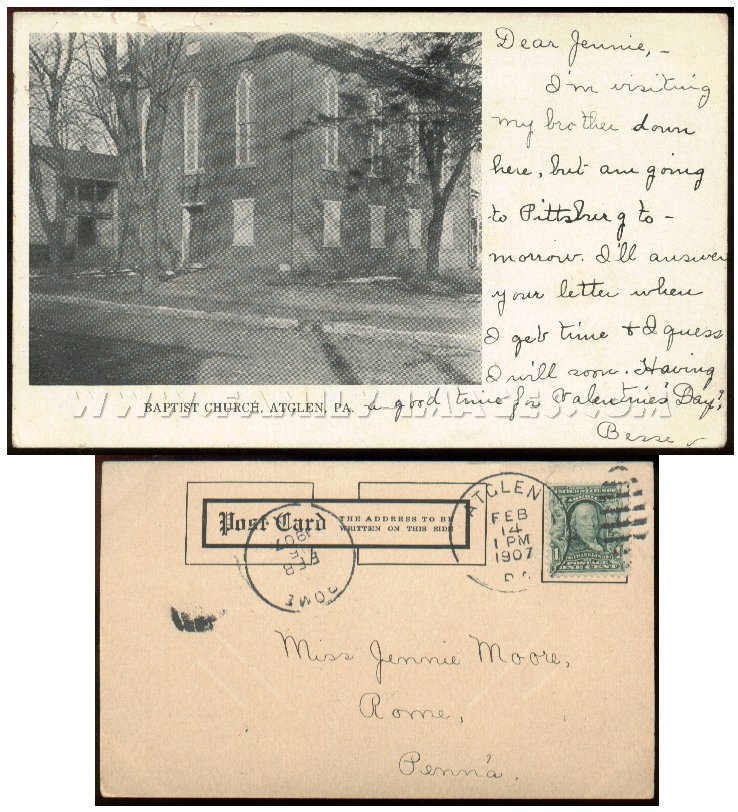 Dear Jennie,-
I'm visiting
my brother down
here, but am going
to Pittsburg to-
morrow. I'll answer
your letter when
I get time & I guess
I will soon. Having
a good time for Valentines' Day?
Besse
BAPTIST CHURCH, ATGLEN, PA.
WWW.FAMILY-IMAGES.COM
Post Card
THE ADDRESS TO BE
WRITTEN ON THIS SIDE
ATGLEN
FEB
14
1 PM
1907
PA.
FEB
1907
ROME
FRANKLIN
POSTAGE
ONE CENT
Miss Jennie Moore,
Rome,
Penn'a.